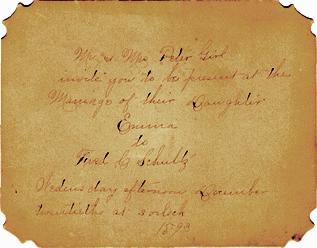 Mr & Mrs Peter Girl
invite you to be present at the
Marriage of their Daughter
Emma
to
Fred G Schultz
Wednesday afternoon December
twentieths at 3 oclock
1893